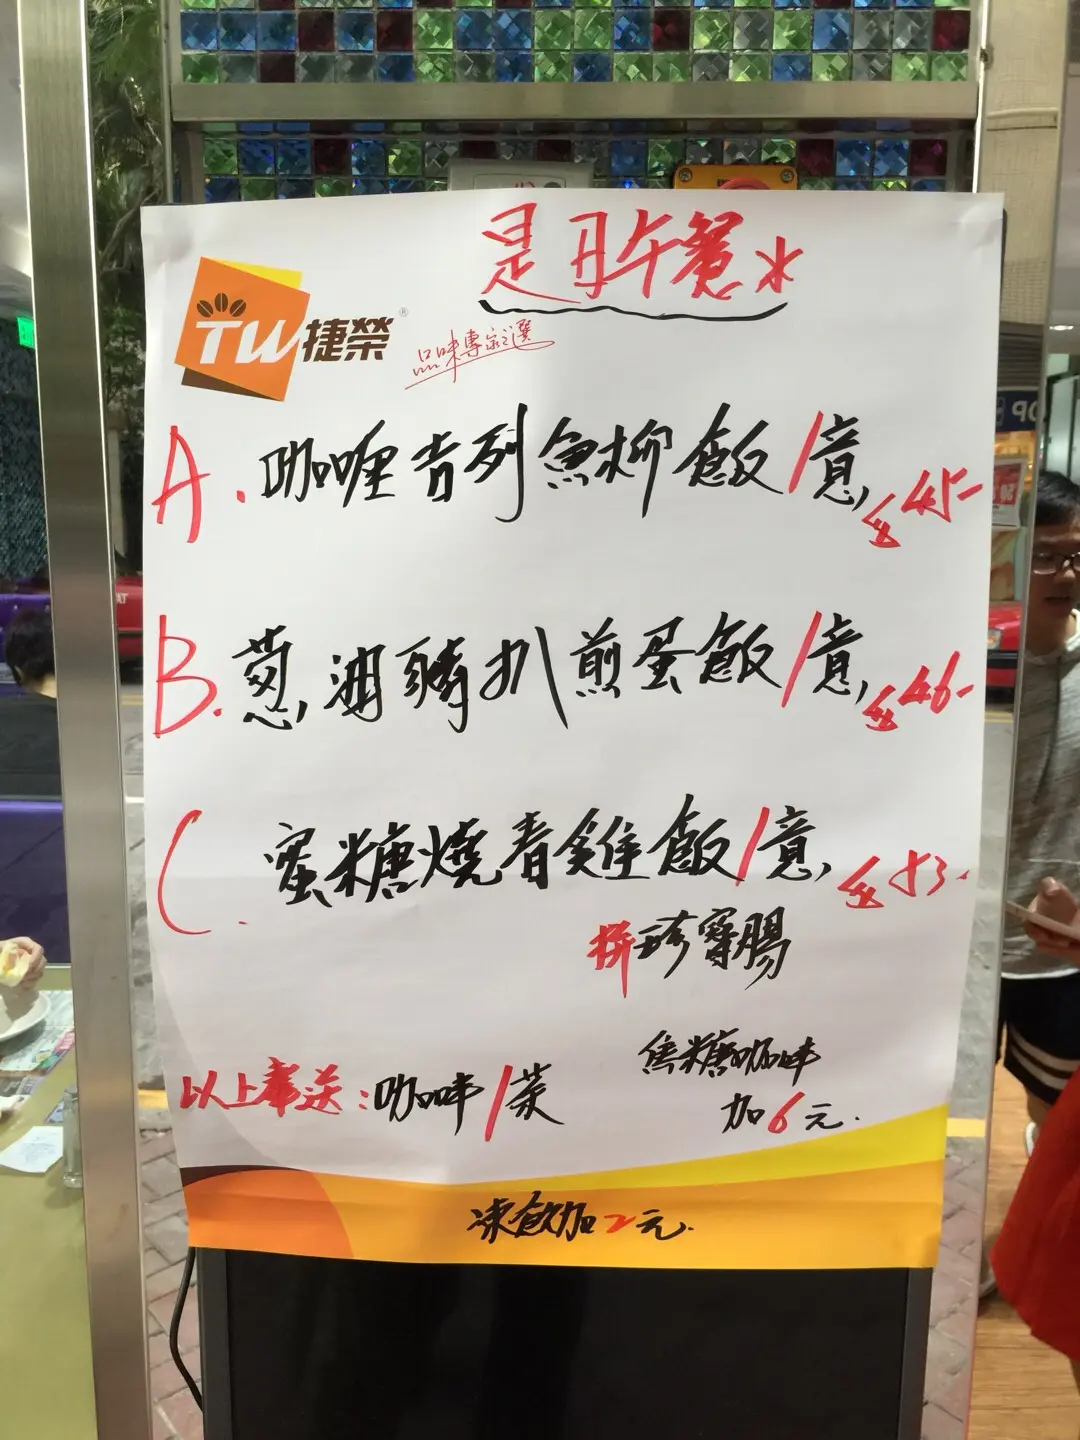 是日午餐
TW捷榮®
品味專家之選
A. 咖喱吉列魚柳飯/意, 45-
B. 葱油豬扒煎蛋飯/意, 46-
C. 蜜糖燒春雞飯/意, 53.
拼珍寶腸
以上奉送:咖啡/茶
焦糖咖啡
加6元.
凍飲加2元.